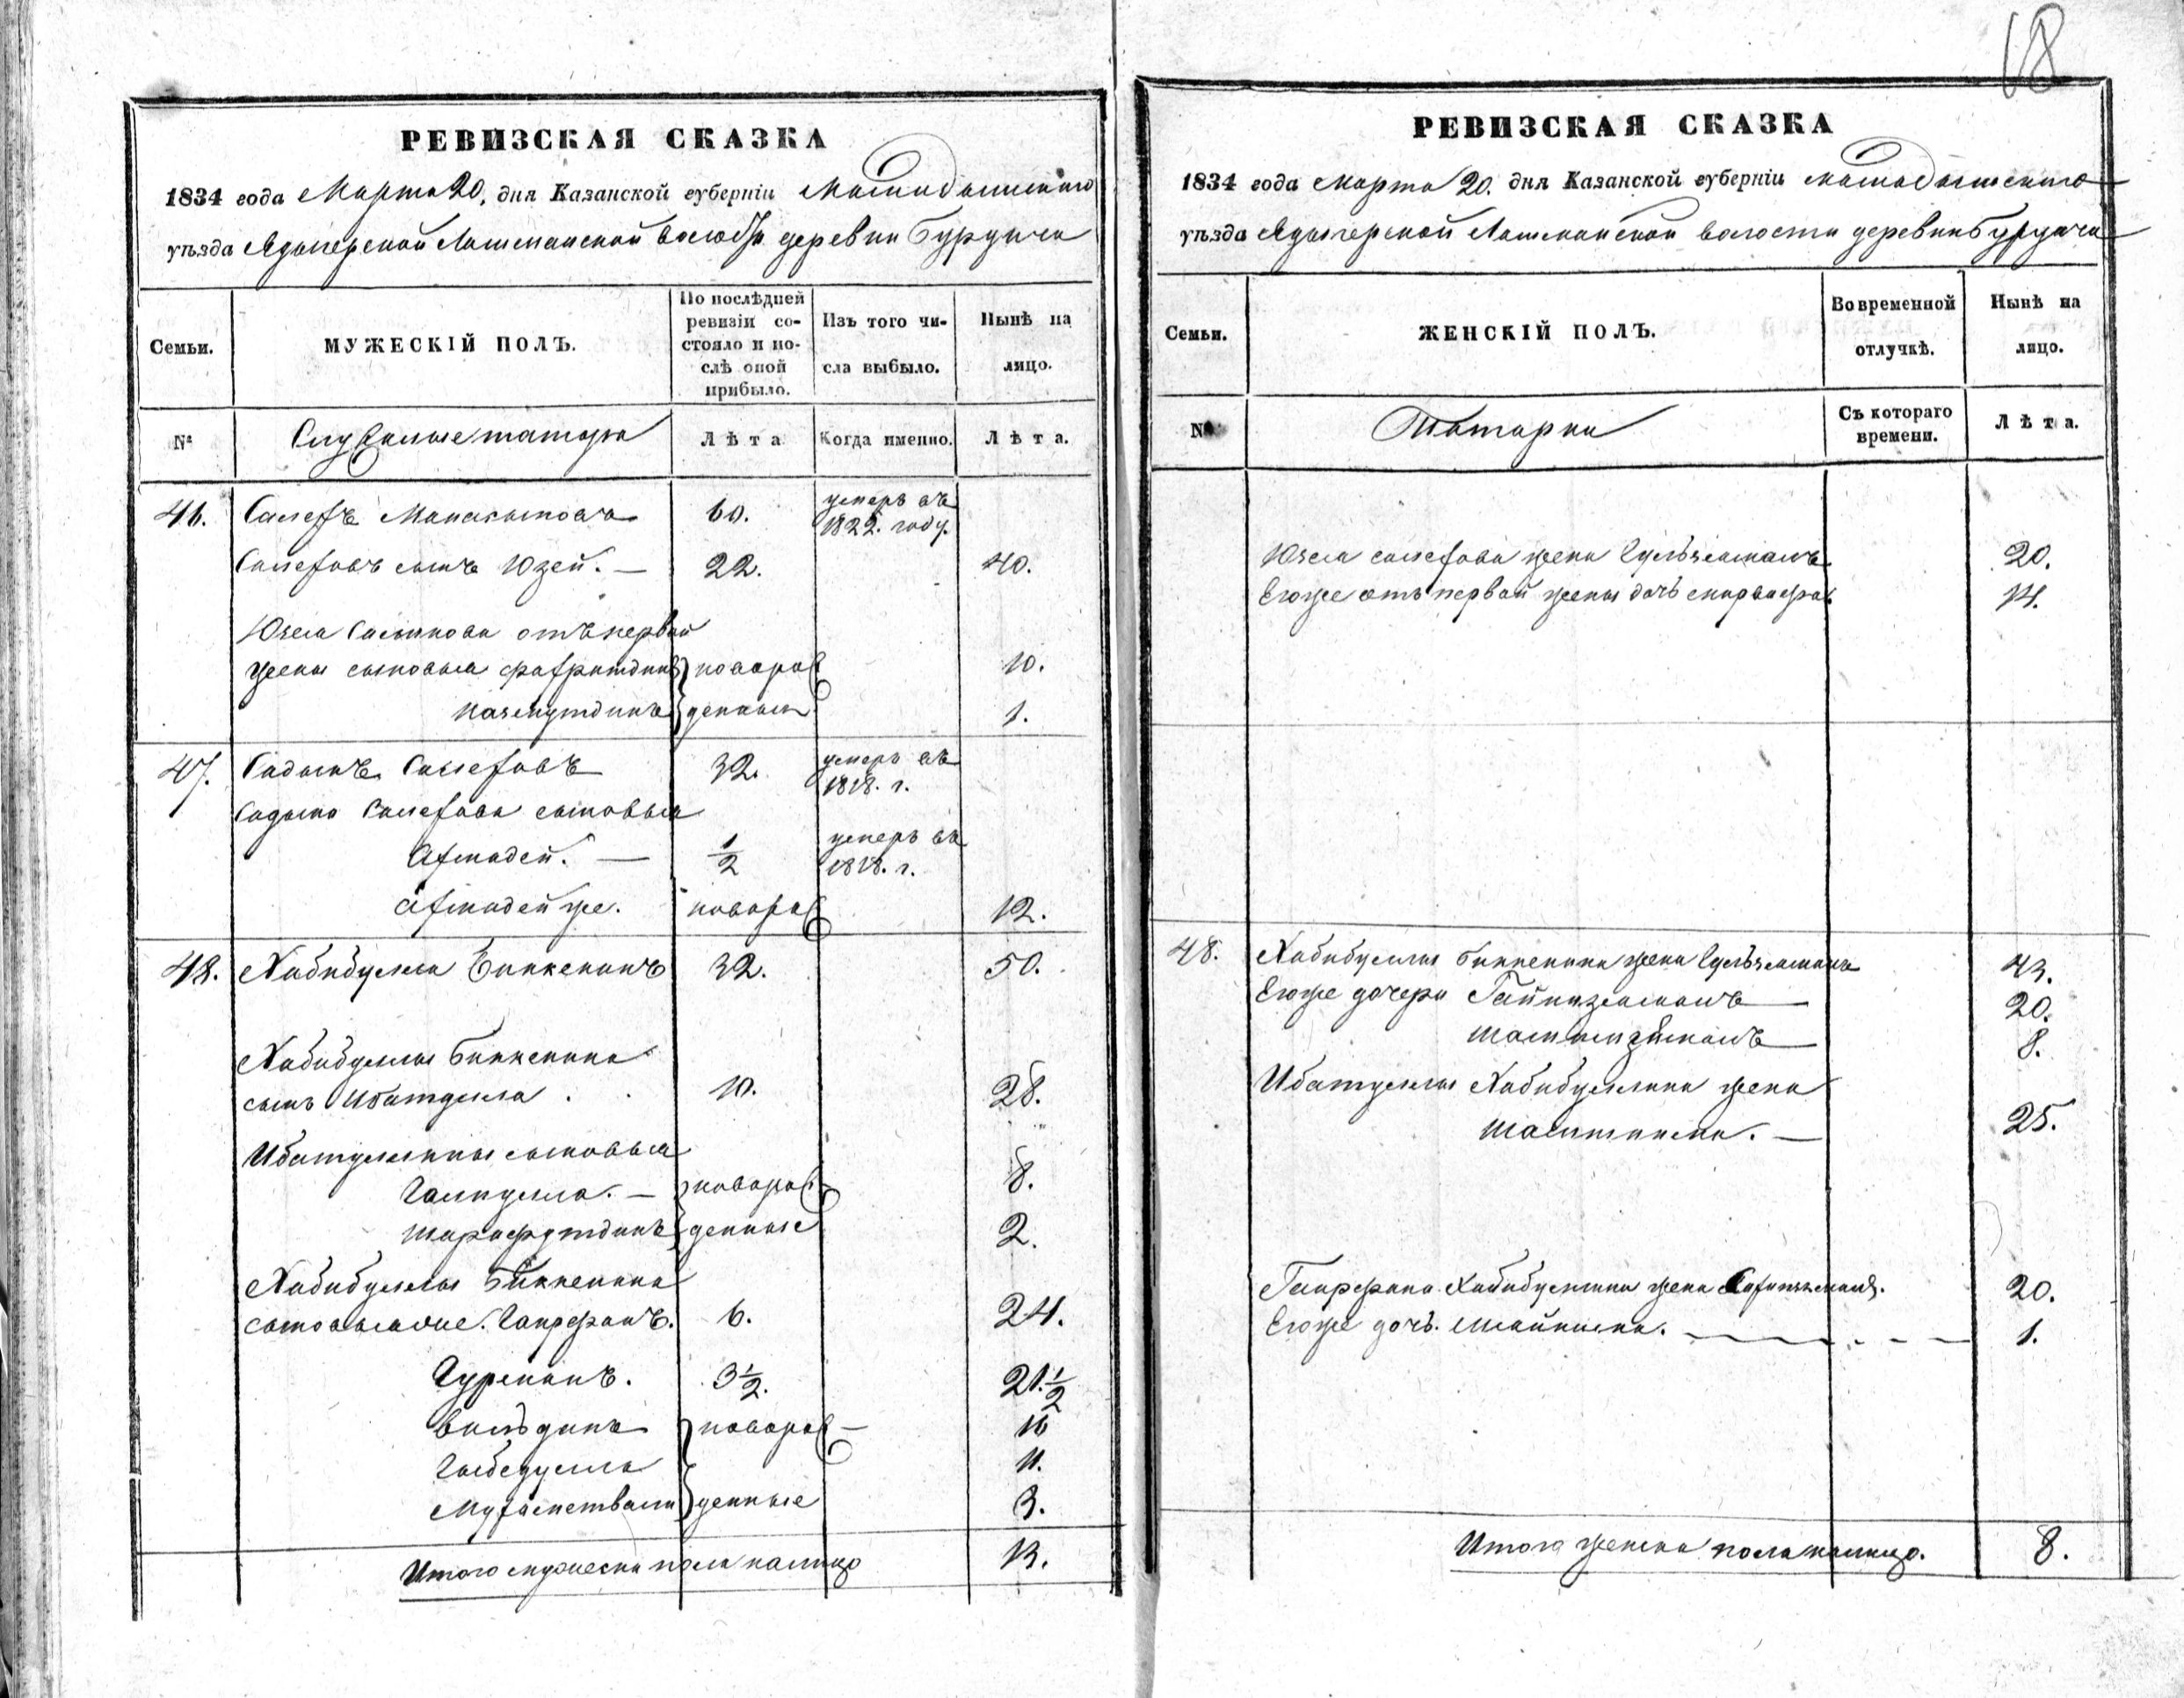 18
РЕВИЗСКАЯ СКАЗКА
1834 года Марта 20. дня Казанской губерніи Мамадышскаго
уѣзда Ядыгерской Лашманской волости деревни Бурдучи
Семьи.
МУЖЕСКІЙ ПОЛЪ.
По послѣдней ревизіи состояло и послѣ оной прибыло.
Изъ того числа выбыло.
Нынѣ на лицо.
№
Служилые татары
Лѣта
Когда именно.
Лѣта.
46. Салехъ 60. умеръ въ 1822. году.
Салеховъ сынъ Юзей. — 22. 40.
от первой
жены сыновья Фахритдинъ новорож 10.
денныя 1.
47. Садыкъ Салеховъ 32. умеръ въ 1818. г.
Садыка Салехова сыновья
Ахмадей. — 1/2 умеръ въ 1818. г.
Ахмадей же. новорож 12.
48. Хабибулла Биккенинъ 32. 50.
Хабибуллы Биккенина
сынъ Ибатулла . . 10. 28.
Ибатуллины сыновья
Галиулла. — новорож 8.
Шарафутдинъ денные 2.
Хабибуллы Биккенина
Гапфанъ. 6. 24.
Гурманъ. 3 1/2. 21. 1/2
новорож — 16
11.
денные 3.
Итого мужеска пола налицо 13.
РЕВИЗСКАЯ СКАЗКА
1834 года Марта 20. дня Казанской губерніи Мамадышскаго
уѣзда Ядыгерской Лашманской волости деревни Бурдучи
Семьи.
ЖЕНСКІЙ ПОЛЪ.
Во временной отлучкѣ.
Нынѣ на лицо.
№
Татарки
Съ котораго времени.
Лѣта.
Юзея Салехова жена Гульзямалъ 20.
Егоже отъ первой жены дочь 14.
48. Хабибуллы Биккенина жена Гульзямалъ 43.
Егоже дочери Гайнизямалъ — 20.
8.
Ибатуллы Хабибуллина жена
25.
Хабибуллина жена 20.
Егоже дочь. 1.
Итого женска пола налицо. 8.